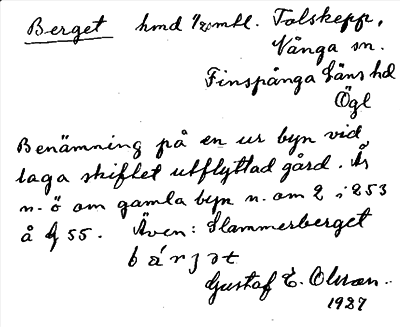 Berget hmd 1/20 mtl. Tolskepp,
Vånga sn.
Finspånga Läns hd
Ögl
Benämning på en ur byn vid
laga skiftet utflyttad gård. Är
n. ö om gamla byn n. om 2 i 253
å Af 55. Även: Slammerberget
bárjət
Gustaf E. Olsson.
1927